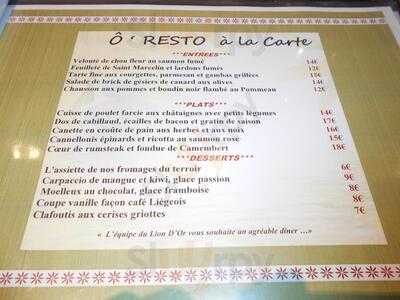 Ô ' RESTO à la Carte
***ENTREES***
Velouté de chou fleur au saumon fumé 14€
Feuilleté de Saint Marcelin et lardons fumés 12€
Tarte fine aux courgettes, parmesan et gambas grillées 15€
Salade de brick de gésiers de canard aux olives 14€
Chausson aux pommes et boudin noir flambé au Pommeau 12€
***PLATS***
Cuisse de poulet farcie aux châtaignes avec petits légumes 14€
Dos de cabillaud, écailles de bacon et gratin de saison 17€
Canette en croûte de pain aux herbes et aux noix 16€
Cannellonis épinards et ricotta au saumon rose 15€
Cœur de rumsteak et fondue de Camembert 18€
***DESSERTS***
L'assiette de nos fromages du terroir 6€
Carpaccio de mangue et kiwi, glace passion 9€
Moelleux au chocolat, glace framboise 8€
Coupe vanille façon café Liégeois 8€
Clafoutis aux cerises griottes 7€
« L'équipe du Lion D'Or vous souhaite un agréable dîner ...»